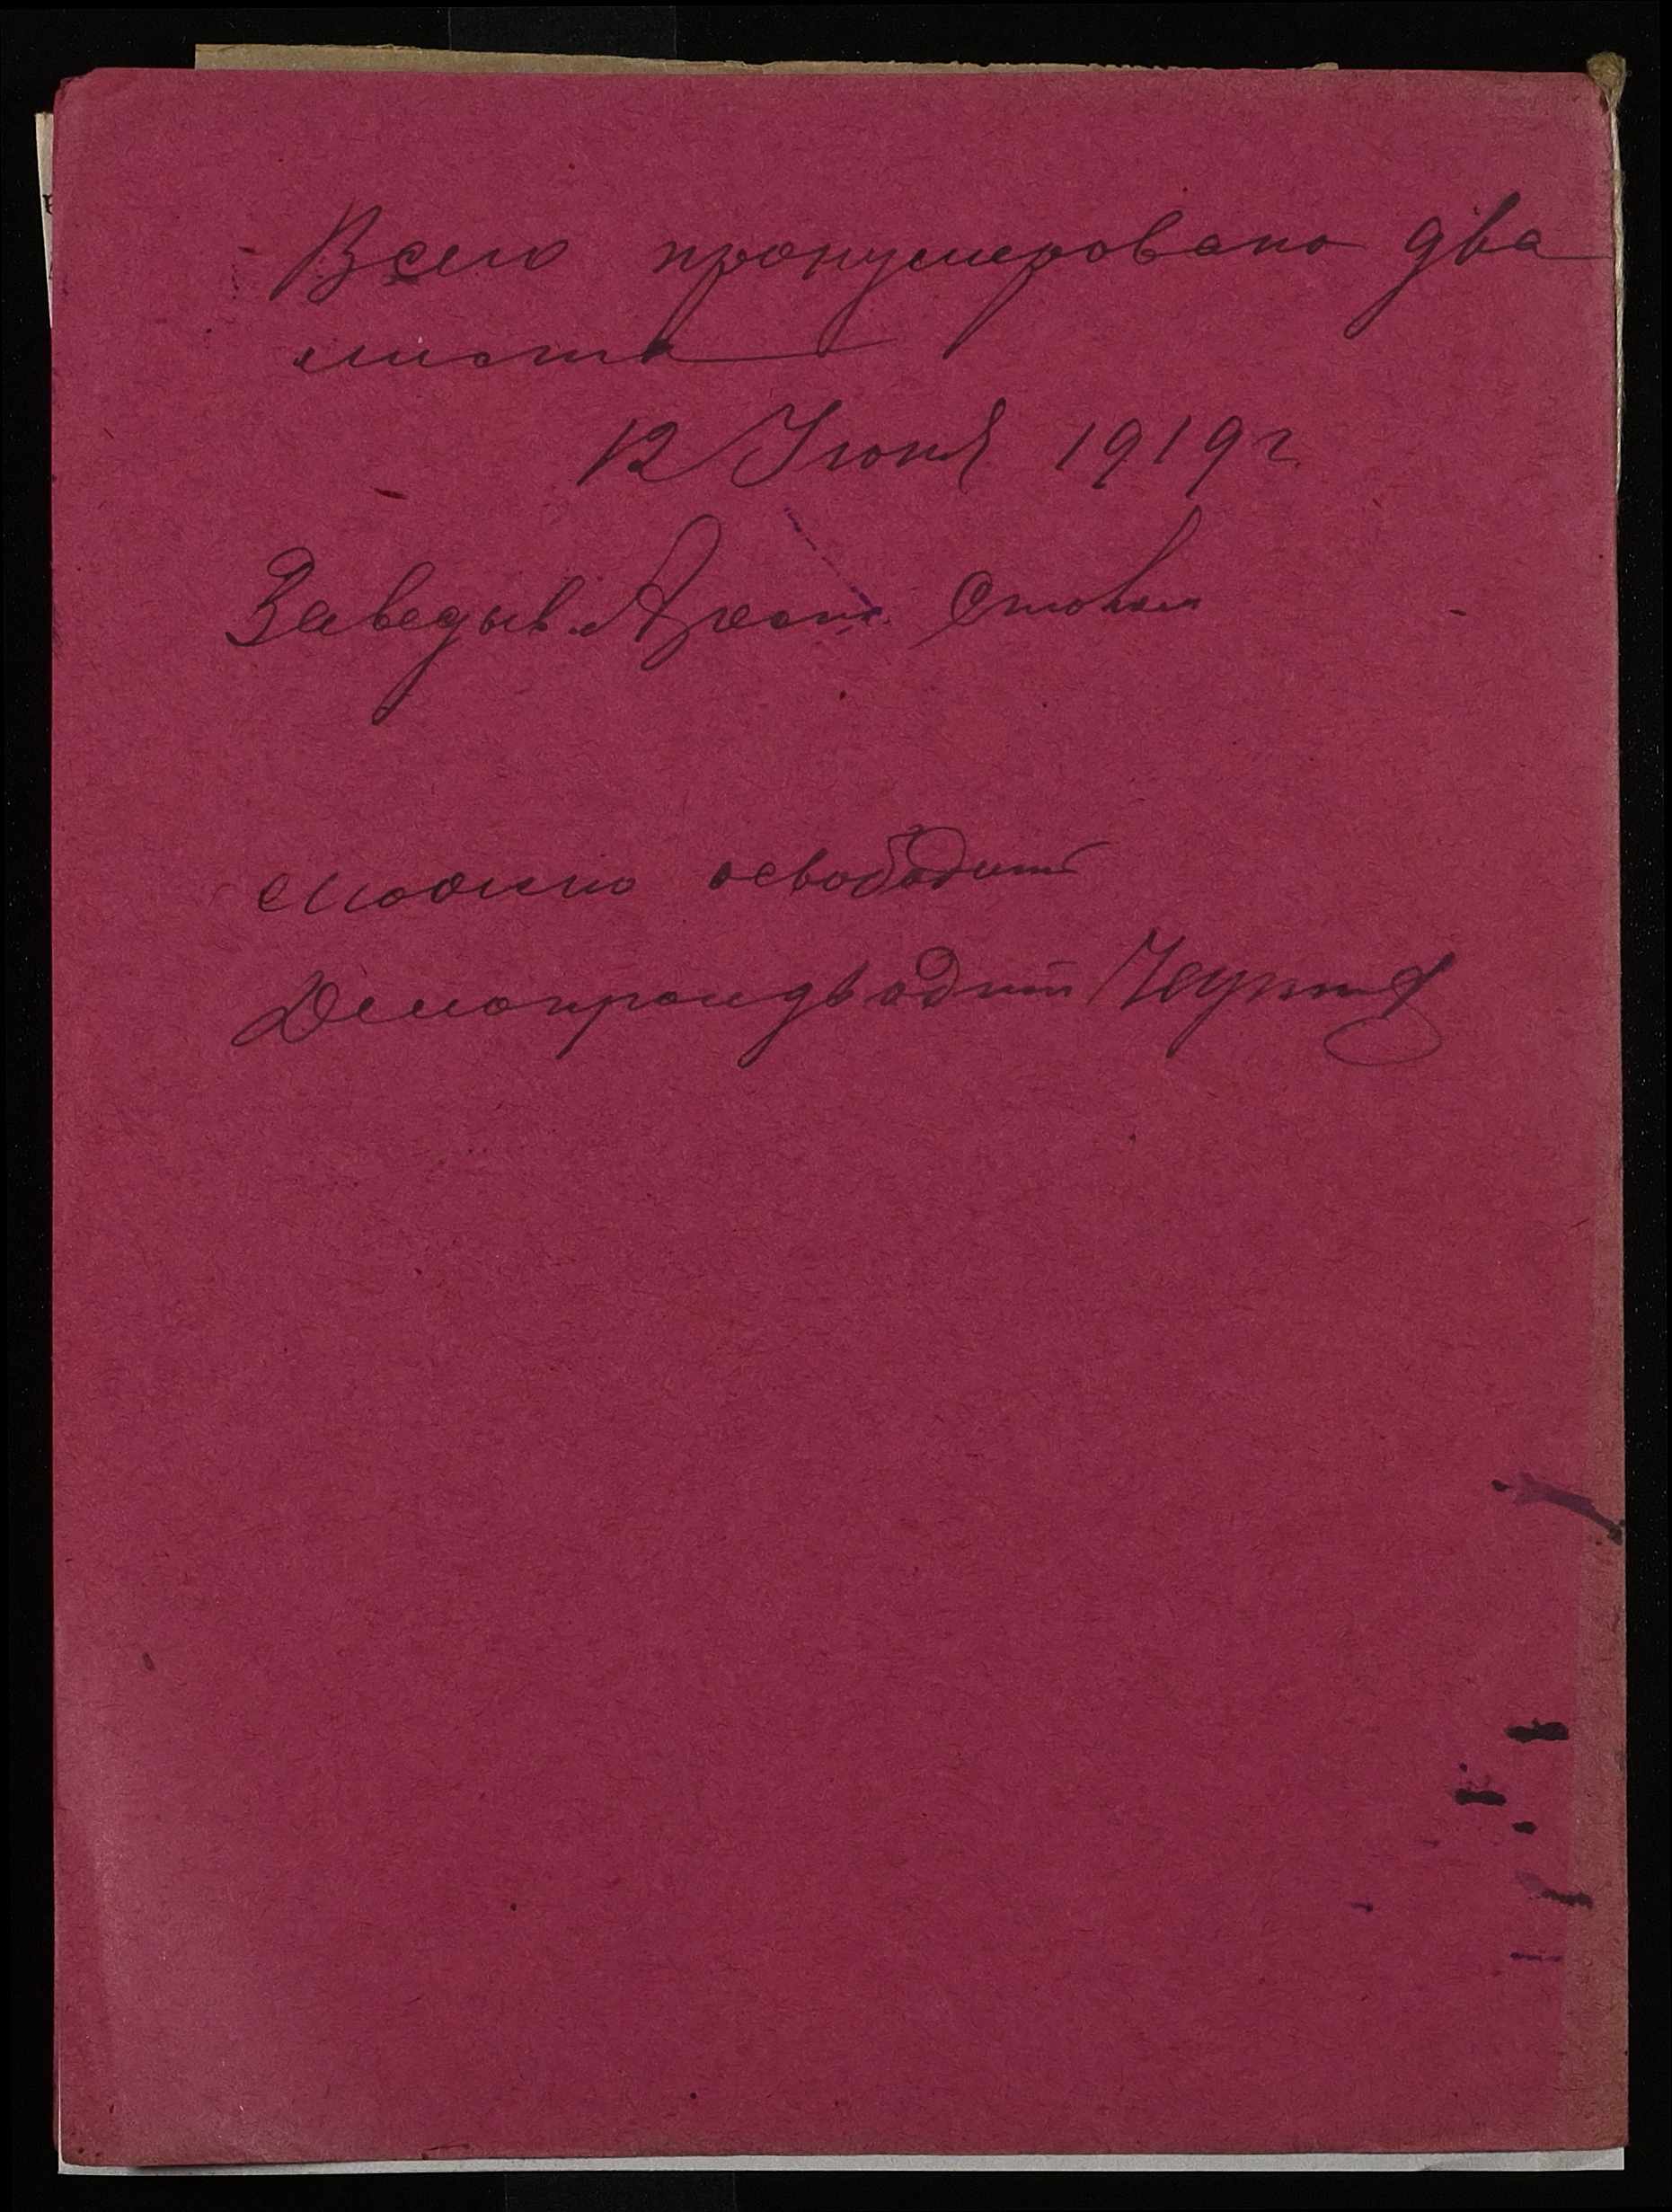 Всего пронумеровано два
листа
12 Июня 1919 г
Заведыв. Арест. Столом
можно освободить
Делопроизводит